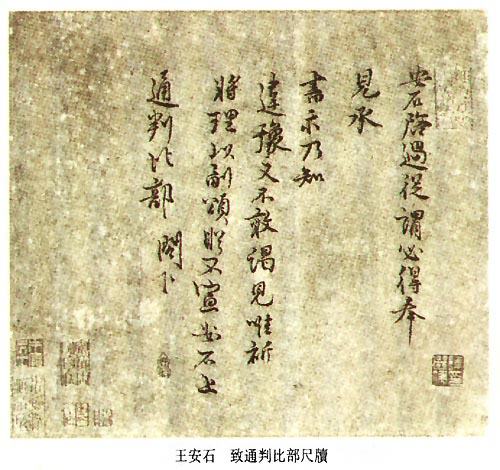 安石啓過從謂必得奉
見承
書示乃知
違豫又不敢謁見唯祈
將理以副頌詠不宣安石上
通判比部 閤下
王安石 致通判比部尺牘